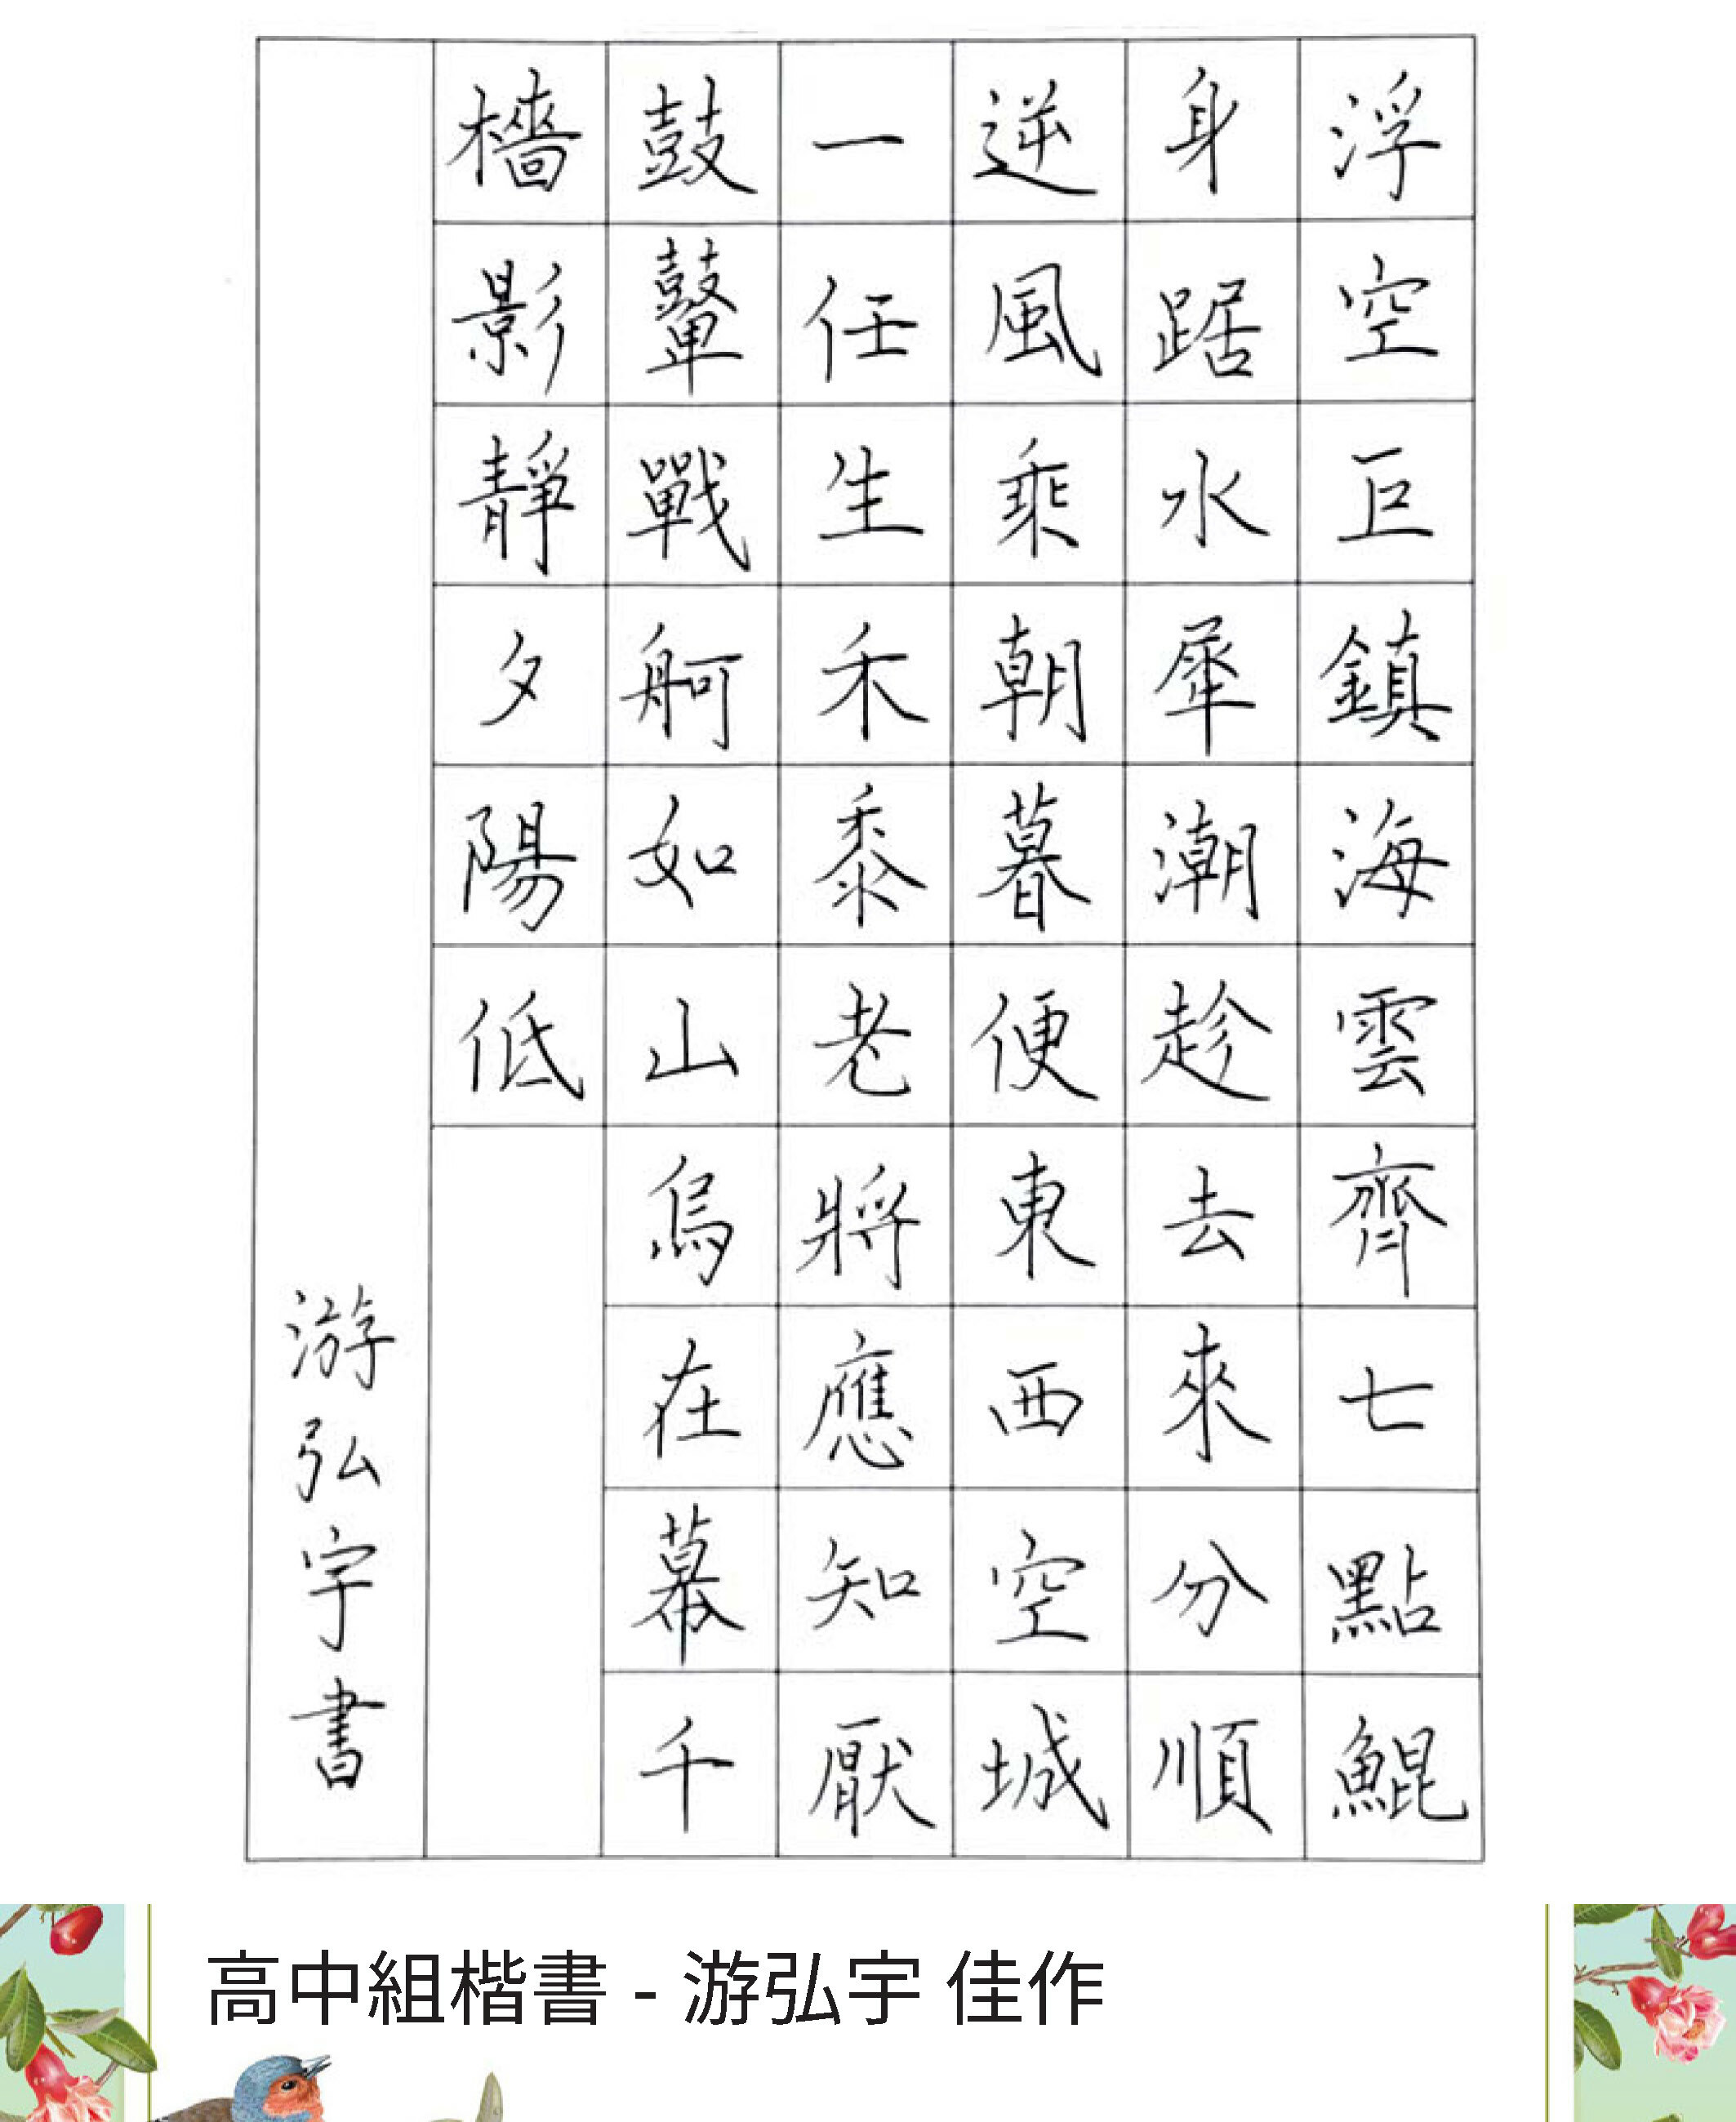 浮空巨鎮海雲齊七點鯤
身踞水犀潮趁去來分順
逆風乘朝暮便東西空城
一任生禾黍老將應知厭
鼓鼙戰舸如山烏在幕千
檣影靜夕陽低
游弘宇書
高中組楷書 - 游弘宇 佳作